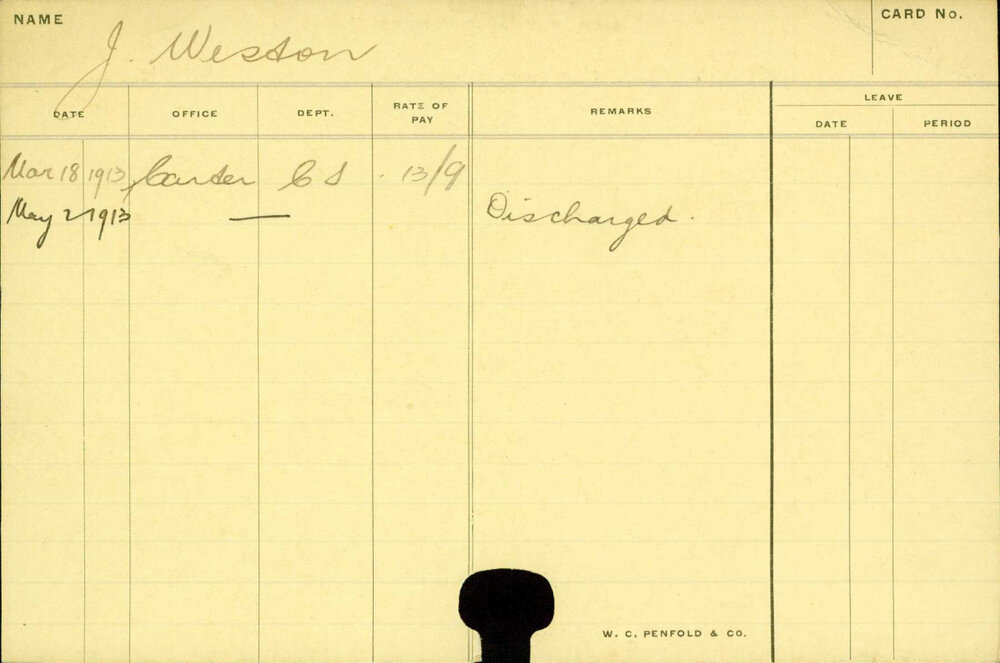 NAME
CARD No.
J. Weston
DATE OFFICE DEPT. RATE OF PAY REMARKS LEAVE
DATE PERIOD
Mar 18 1913 Carter C S 13/9
May 2 1913 — Discharged.
W. C. PENFOLD & CO.